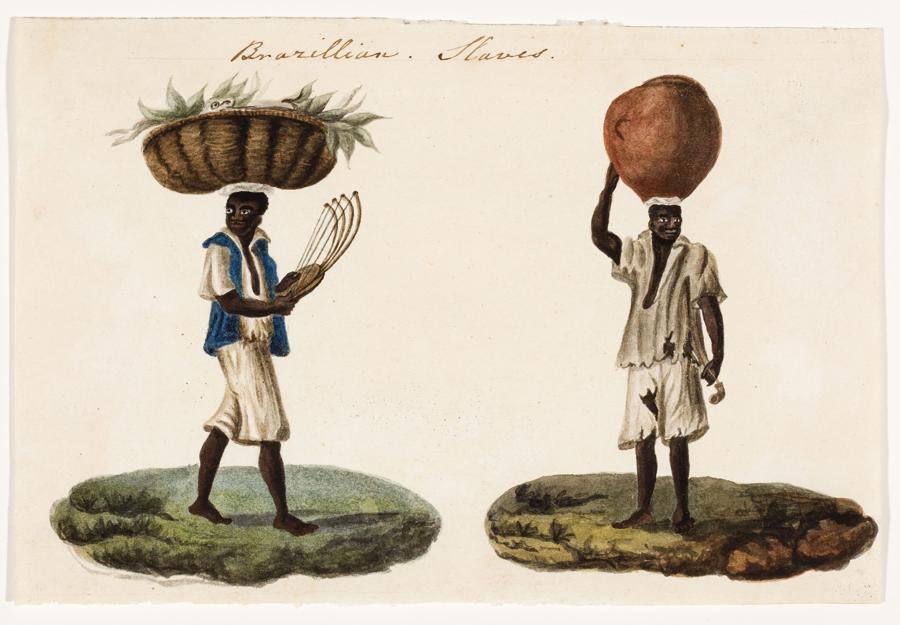 Brazillian. Slaves.